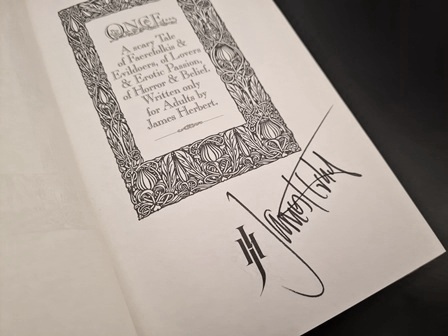 ONCE...
A scary Tale
of Faerefolkis &
Evildoers, of Lovers
& Erotic Passion,
of Horror & Belief.
Written only
for Adults by
James Herbert.
JH James Herbert